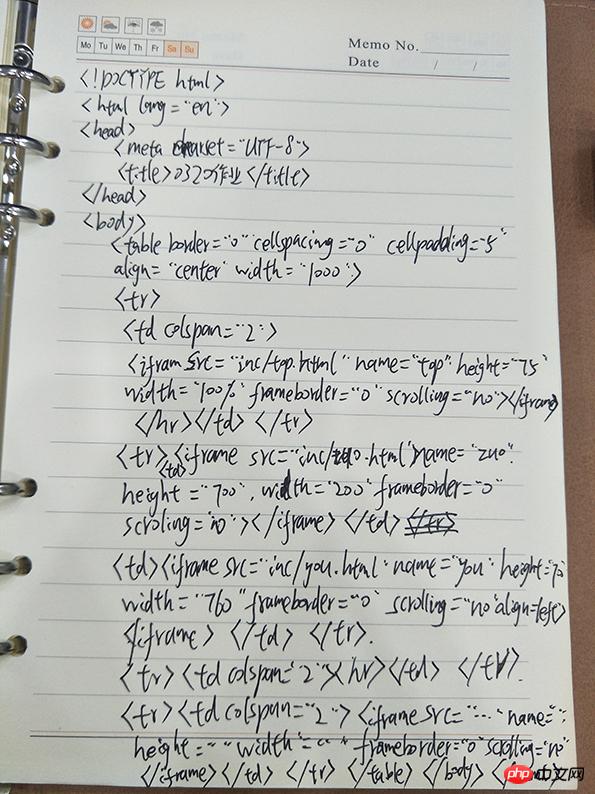 Mo Tu We Th Fr Sa Su
Memo No.
Date / /
<!DOCTYPE html>
<html lang="en">
<head>
<meta charset="UTF-8">
<title>0322作业</title>
</head>
<body>
<table border="0" cellspacing="0" cellpadding="5"
align="center" width="1000">
<tr>
<td colspan="2">
<ifram src="inc/top.html" name="top" height="75"
width="100%" frameborder="0" scrolling="no"></iframe>
</hr></td> </tr>
<tr><td><iframe src="inc/zuo.html" name="zuo"
height="700", width="200" frameborder="0"
scroling="no"></iframe> </td>
<td><iframe src="inc/you.html" name="you" height="70
width="760" frameborder="0" scrolling="no" align=left>
</iframe> </td> </tr>.
<tr><td colspan="2"><hr></td> </tr>.
<tr><td colspan="2"> <iframe src="..." name="";
height=" " width=" " frameborder="0" scrolling="no"
</iframe></td> </tr> </table> </body>
php 中文网